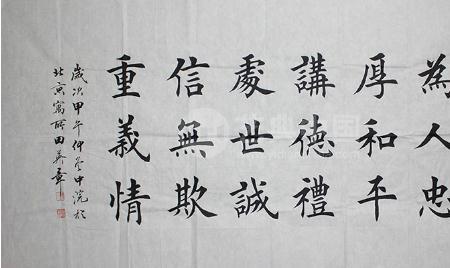 為人忠
厚和平
講德禮
處世誠
信無欺
重義情
歲次甲午仲冬中浣於
北京寓所田英章